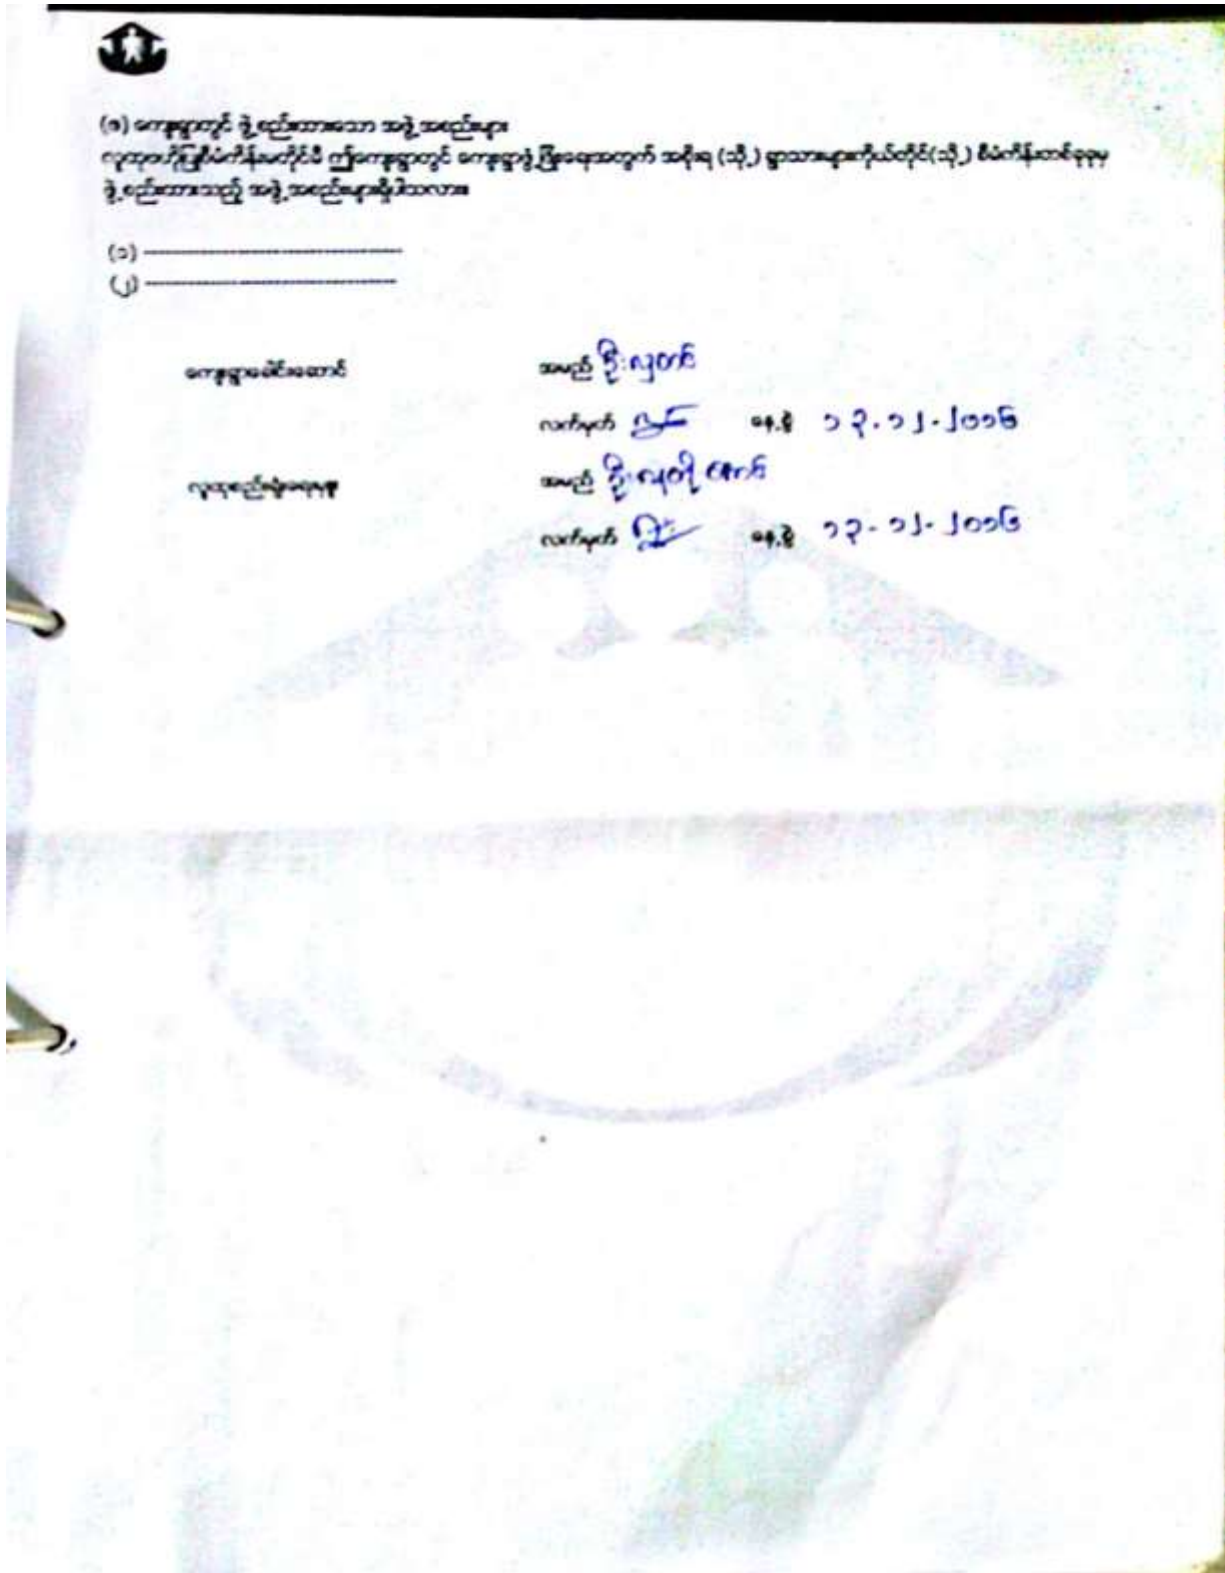 (ဇ) ကျေးရွာတွင် ဖွဲ့စည်းထားသော အဖွဲ့အစည်းများ
လူထုဗဟိုပြုစီမံကိန်းမတိုင်မီ ဤကျေးရွာတွင် ကျေးရွာဖွံ့ဖြိုးရေးအတွက် အစိုးရ (သို့) ရွာသားများကိုယ်တိုင်(သို့) စီမံကိန်းတစ်ခုခုမှ
ဖွဲ့စည်းထားသည့် အဖွဲ့အစည်းများရှိပါသလား။
(၁) ------------------------------------
(၂) ------------------------------------
ကျေးရွာခေါင်းဆောင် အမည် ဦးလှတင်
လက်မှတ် နေ့စွဲ ၁၃.၁၂.၂၀၁၆
လူထုစည်းရုံးရေးမှူး အမည် ဦးလှတို့အောင်
လက်မှတ် နေ့စွဲ ၁၃-၁၂-၂၀၁၆